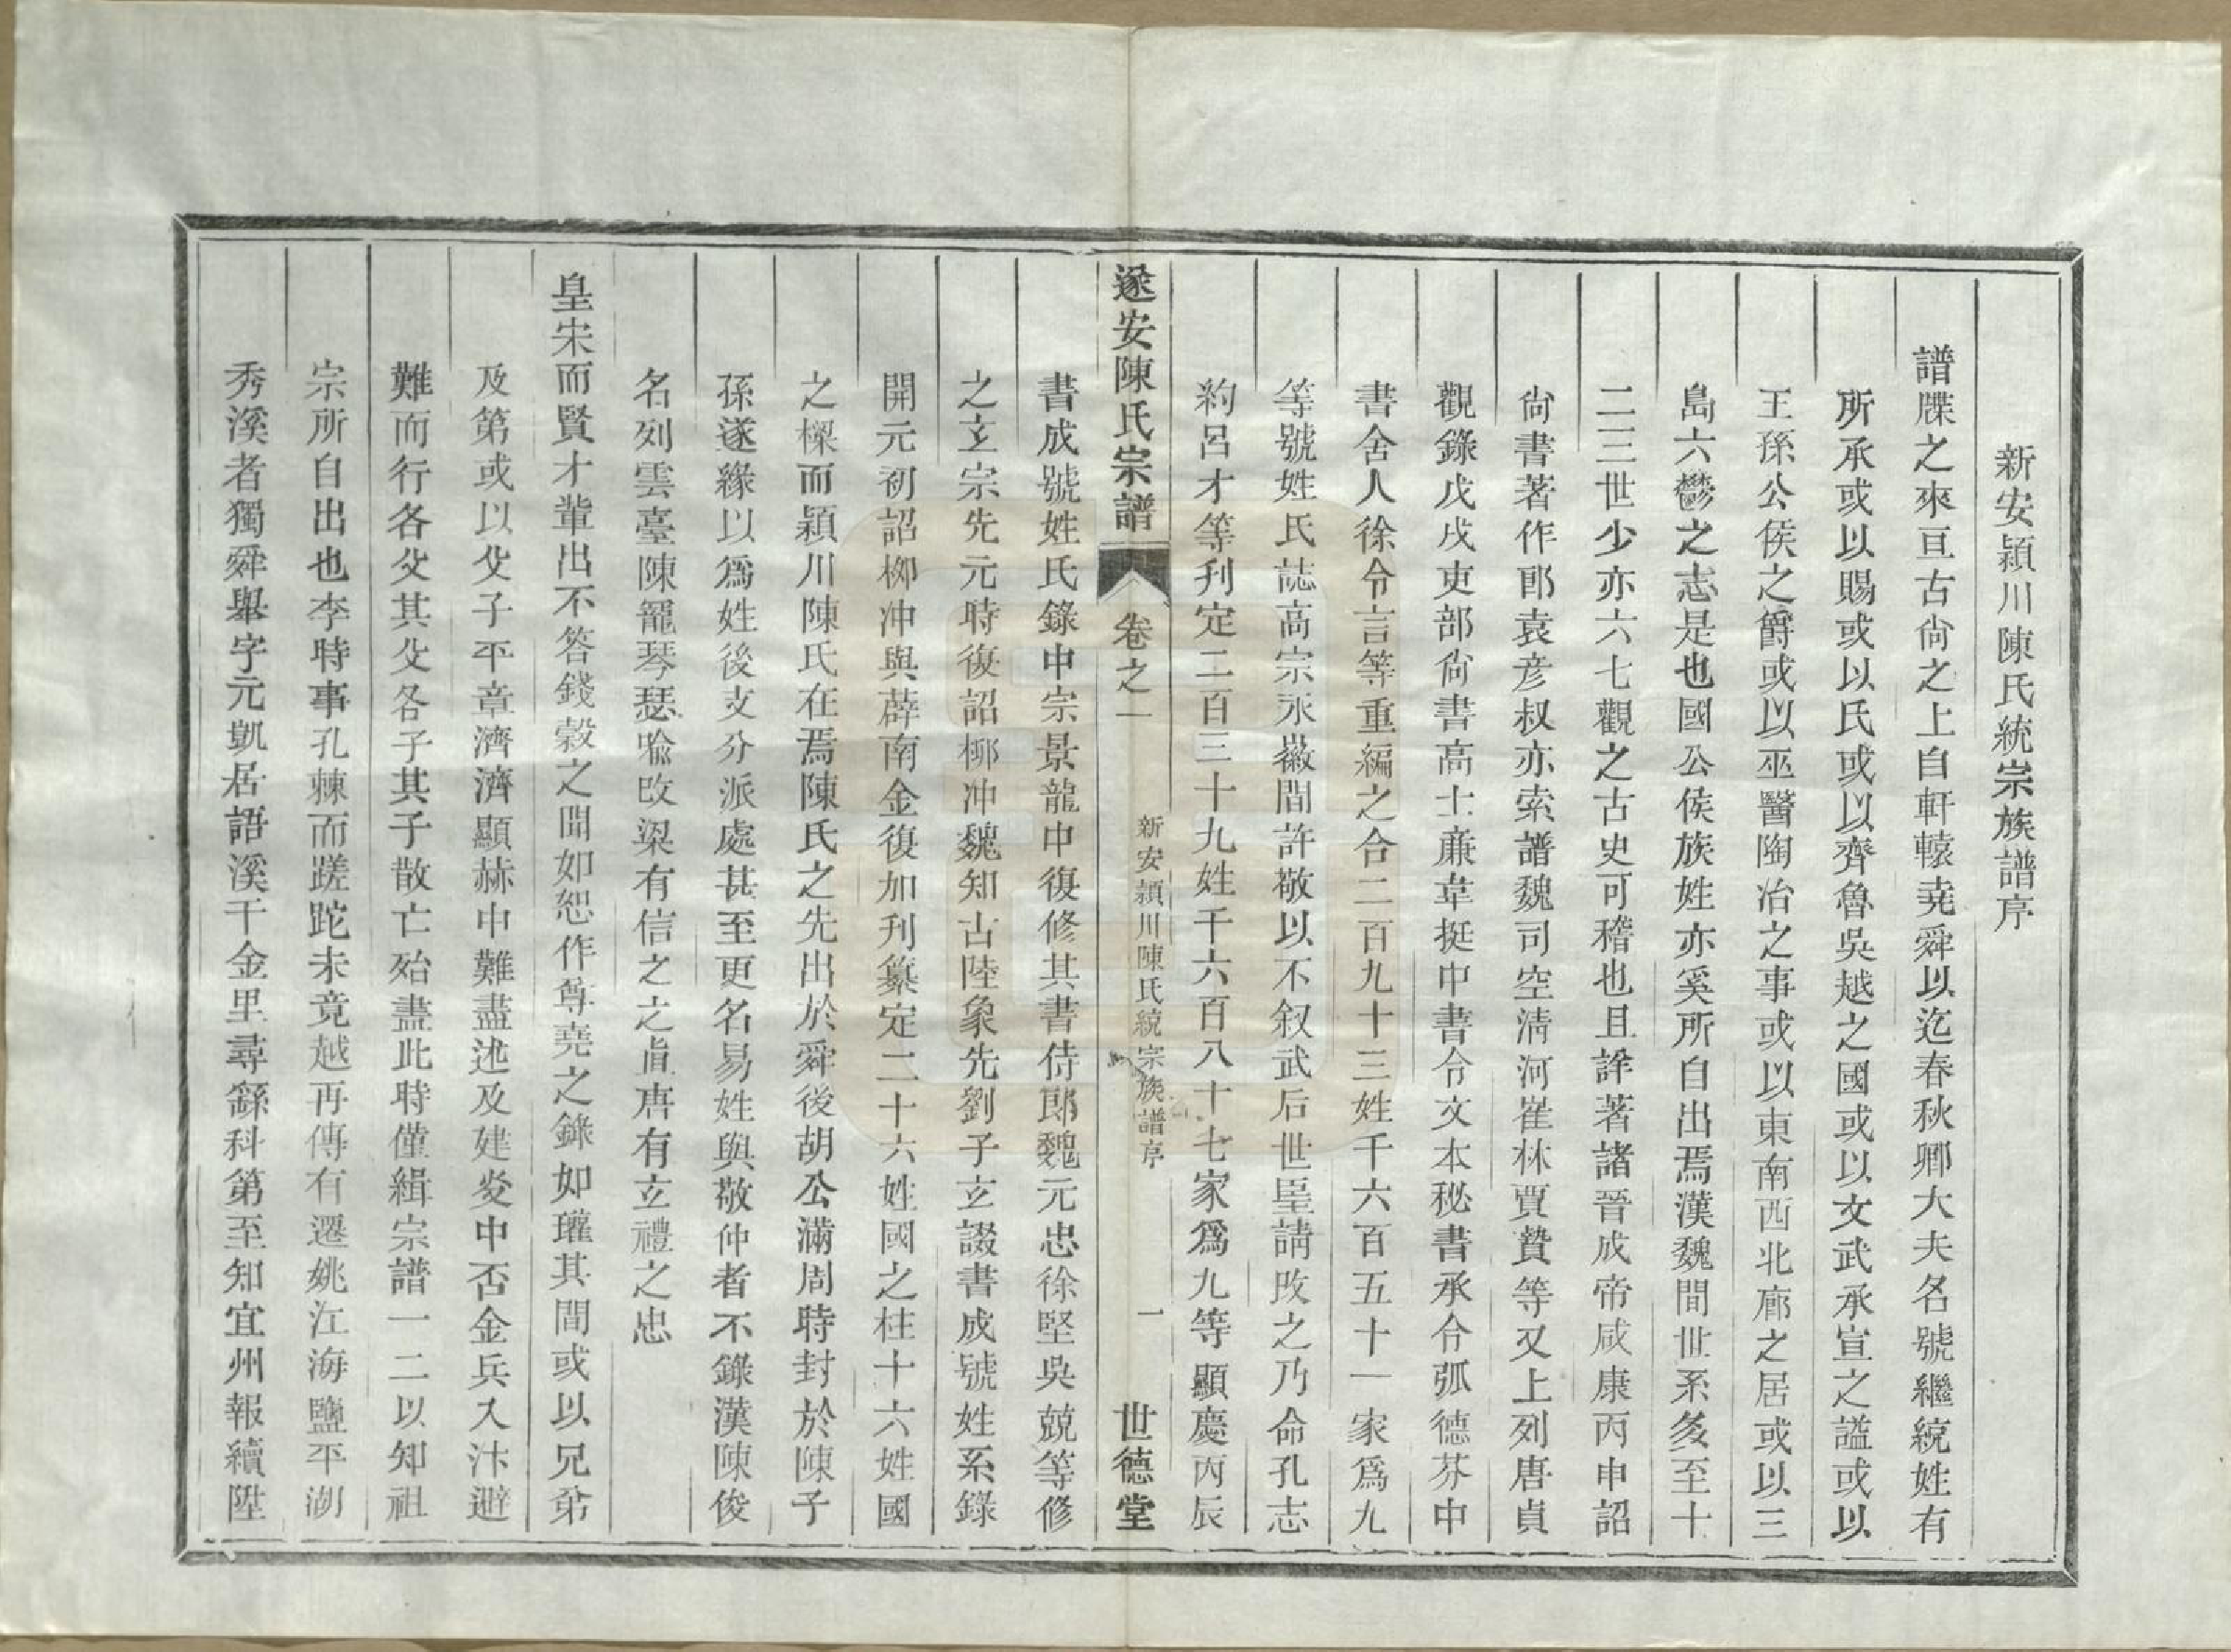 新安潁川陳氏統宗族譜序
譜牒之來亘古尙之上自軒轅堯舜以迄春秋卿大夫名號繼統姓有
所承或以賜或以氏或以齊魯吳越之國或以文武承宣之謚或以
王孫公侯之爵或以巫醫陶冶之事或以東南西北廊之居或以三
島六鬱之志是也國公侯族姓亦奚所自出焉漢魏間世系多至十
二三世少亦六七觀之古史可稽也且詳著諸晉成帝咸康丙申詔
尙書著作郎袁彥叔亦索譜魏司空淸河崔林賈贄等又上列唐貞
觀錄戊戌吏部尙書高士廉韋挺中書令文本秘書承令弧德芬中
書舍人徐令言等重編之合二百九十三姓千六百五十一家爲九
等號姓氏誌高宗永徽間許敬以不叙武后世星請改之乃命孔志
約呂才等刋定二百三十九姓千六百八十七家爲九等顯慶丙辰
遂安陳氏宗譜
卷之一
新安潁川陳氏統宗族譜序
一
世德堂
書成號姓氏錄中宗景龍中復修其書侍郎魏元忠徐堅吳兢等修
之玄宗先元時復詔柳冲魏知古陸象先劉子玄諁書成號姓系錄
開元初詔柳冲與薛南金復加刋纂定二十六姓國之柱十六姓國
之樑而潁川陳氏在焉陳氏之先出於舜後胡公滿周時封於陳子
孫遂緣以爲姓後支分派處甚至更名易姓與敬仲者不錄漢陳俊
名列雲臺陳寵琴瑟喩改梁有信之之貞唐有玄禮之忠
皇宋而賢才輩出不答錢穀之聞如恕作尊堯之錄如瓘其間或以兄弟
及第或以父子平章濟濟顯赫中難盡述及建炎中否金兵入汴避
難而行各父其父各子其子散亡殆盡此時僅緝宗譜一二以知祖
宗所自出也李時事孔棘而蹉跎未竟越再傳有遷姚江海鹽平湖
秀溪者獨舜舉字元凱居語溪千金里尋繇科第至知宜州報績陞